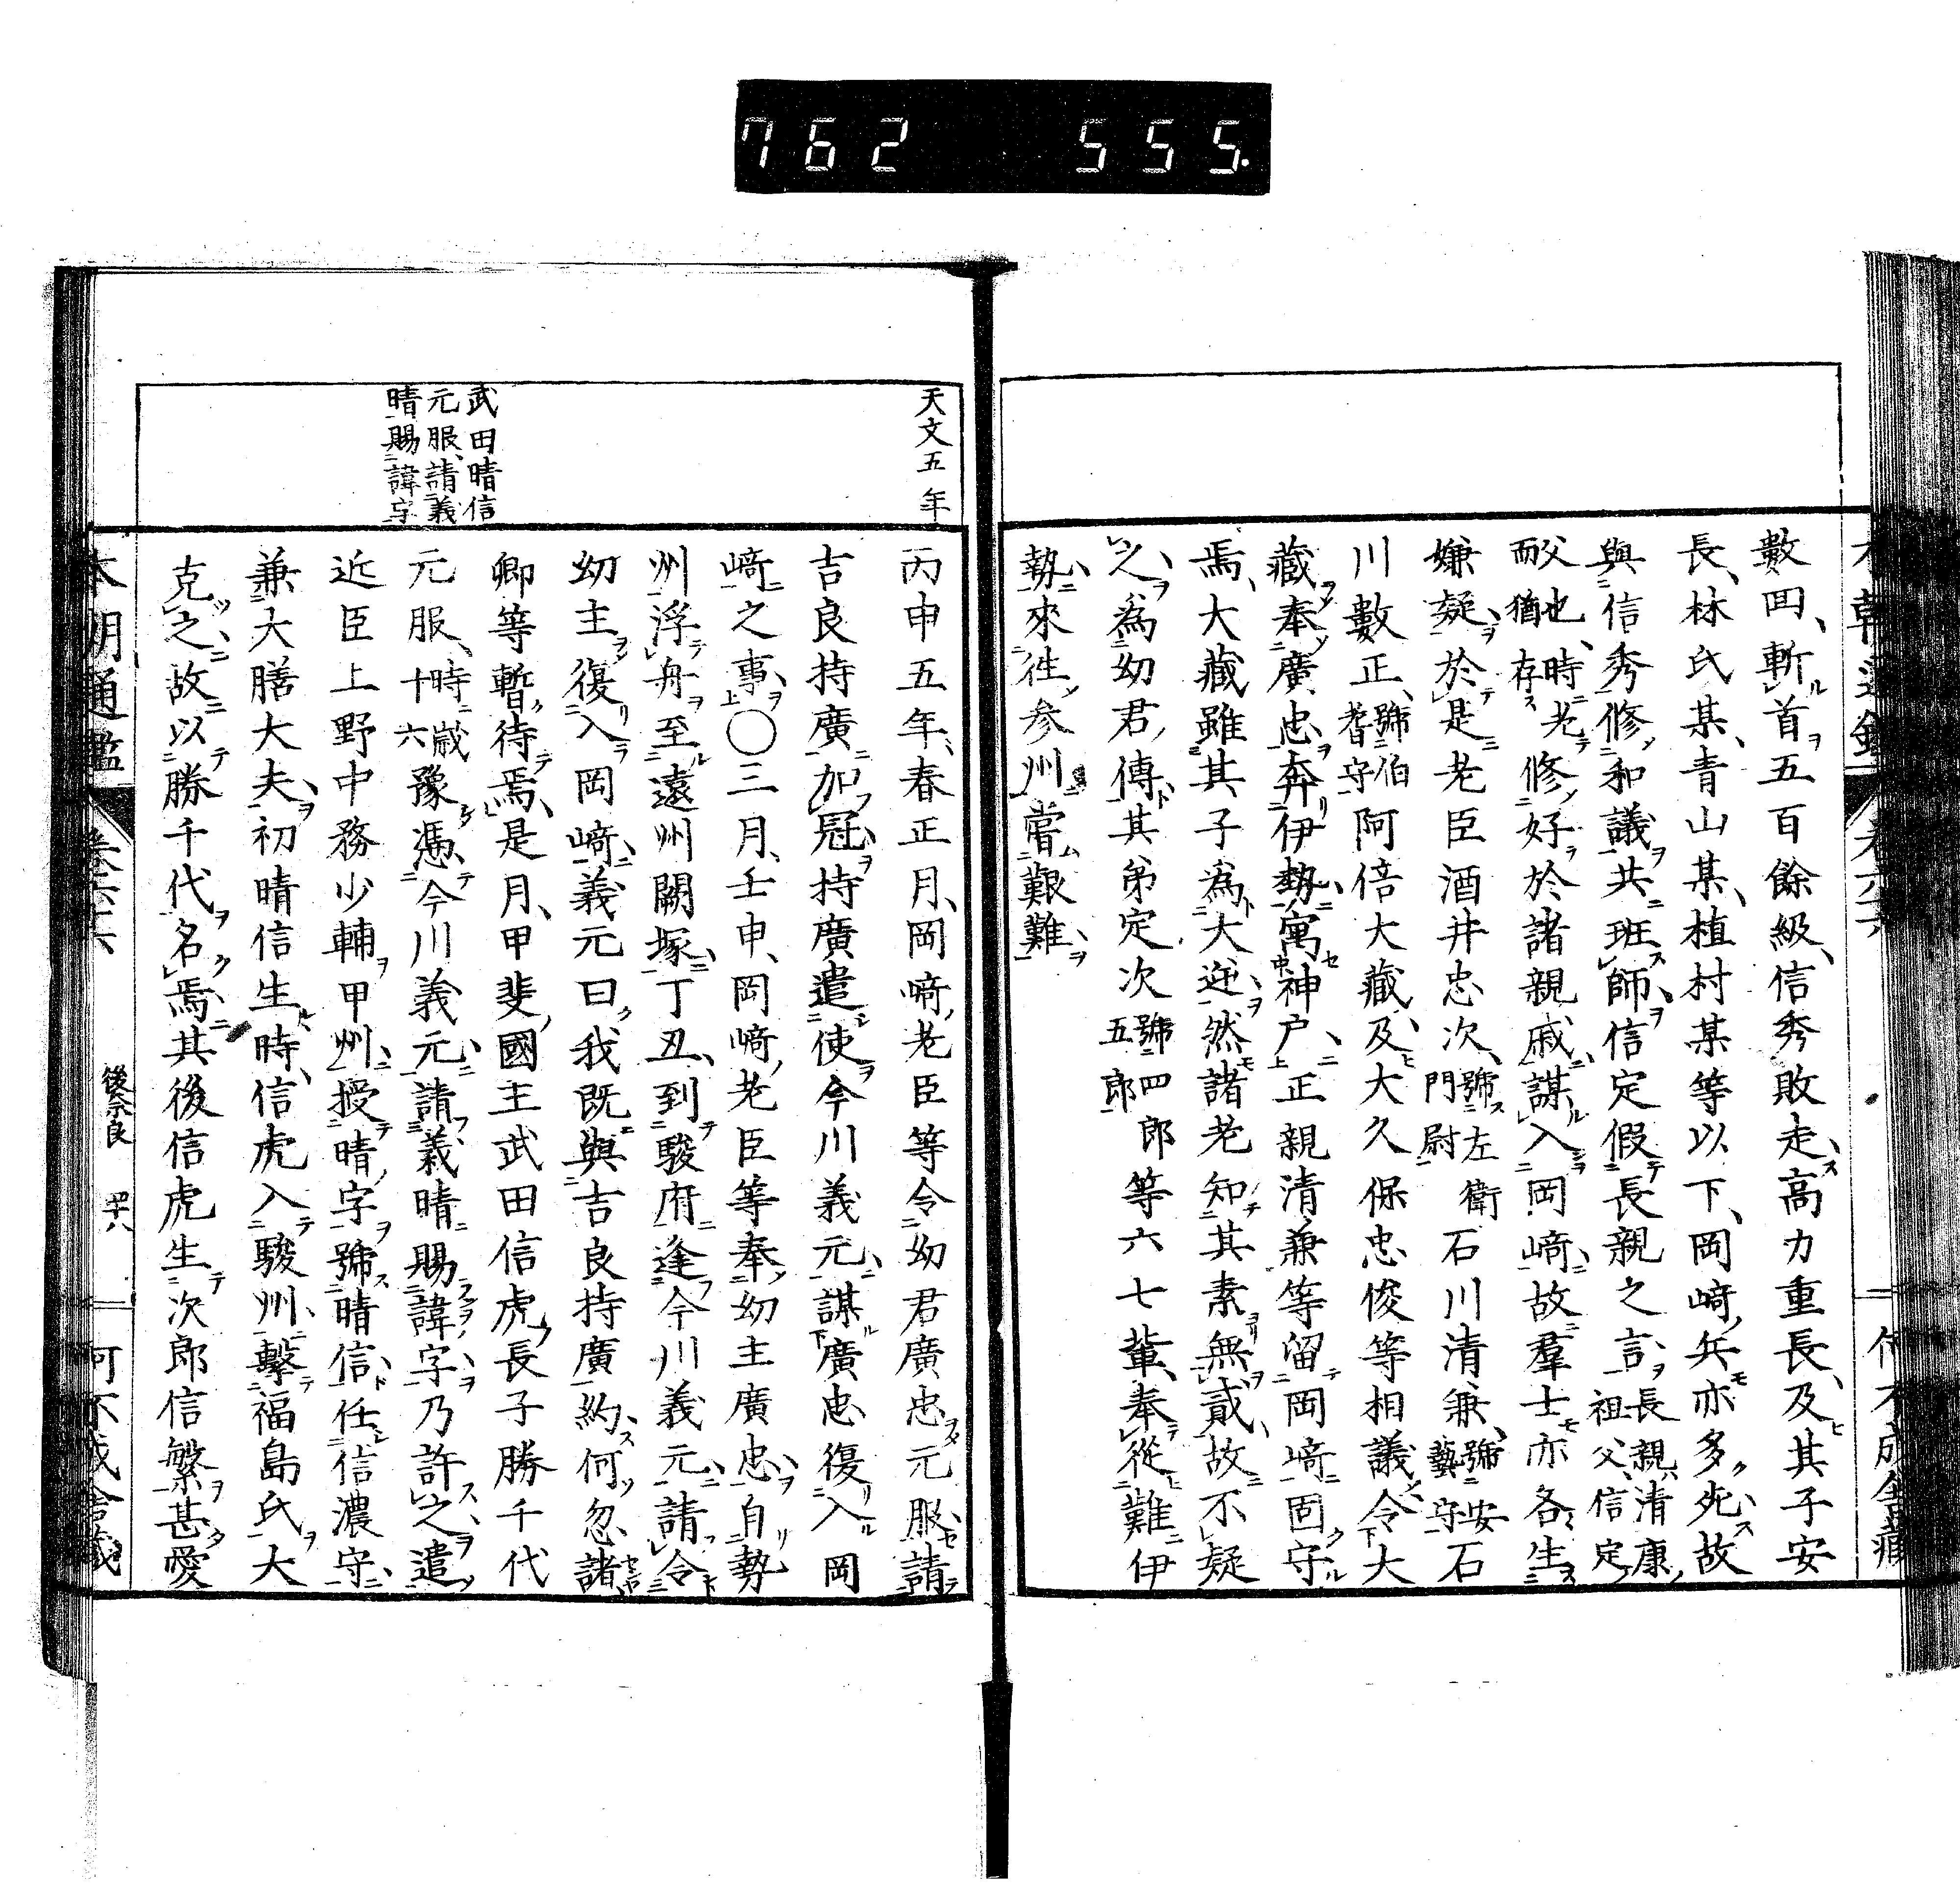 762 555.
數回、斬首五百餘級、信秀敗走、高力重長、及其子安
長、林氏某、青山某、植村某等以下、岡﨑兵亦多死、故
與信秀修和議、共班師、信定假長親之言、長親、清康祖父、信定
父也、時老而猶存修好於諸親戚、謀入岡﨑、故羣士亦各生
嫌疑、於是老臣酒井忠次、號左衛門尉石川清兼、號安藝守石
川數正、號伯耆守阿倍大藏、及大久保忠俊等相議、令大
藏奉廣忠奔伊勢、寓神戸、正親清兼等留岡﨑固守
焉、大藏雖其子為大逆、然諸老知其素無貳、故不疑
之、為幼君傳、其弟定次號四郎五郎等六七輩、奉從難伊
勢、來往參州、嘗艱難、
天文五年
丙申五年、春正月、岡﨑老臣等令幼君廣忠元服、請
吉良持廣加冠、持廣遣使今川義元、謀廣忠復入岡
﨑之事、〇三月、壬申、岡﨑老臣等奉幼主廣忠、自勢
州浮舟至遠州闕塚、丁丑、到駿府、逢今川義元、請令
幼主復入岡﨑、義元曰、我既與吉良持廣約、何忽諸
卿等暫待焉、是月、甲斐國主武田信虎長子勝千代
武田晴信
元服、請義
晴賜諱字
元服、時十六歲豫憑今川義元、請義晴賜諱字、乃許之、遣
近臣上野中務少輔甲州、授晴字、號晴信、任信濃守、
兼大膳大夫、初晴信生時、信虎入駿州、擊福島氏、大
克之、故以勝千代名焉、其後信虎生次郎信繁、甚愛
本朝通鑑 卷六十六 後奈良 四十八